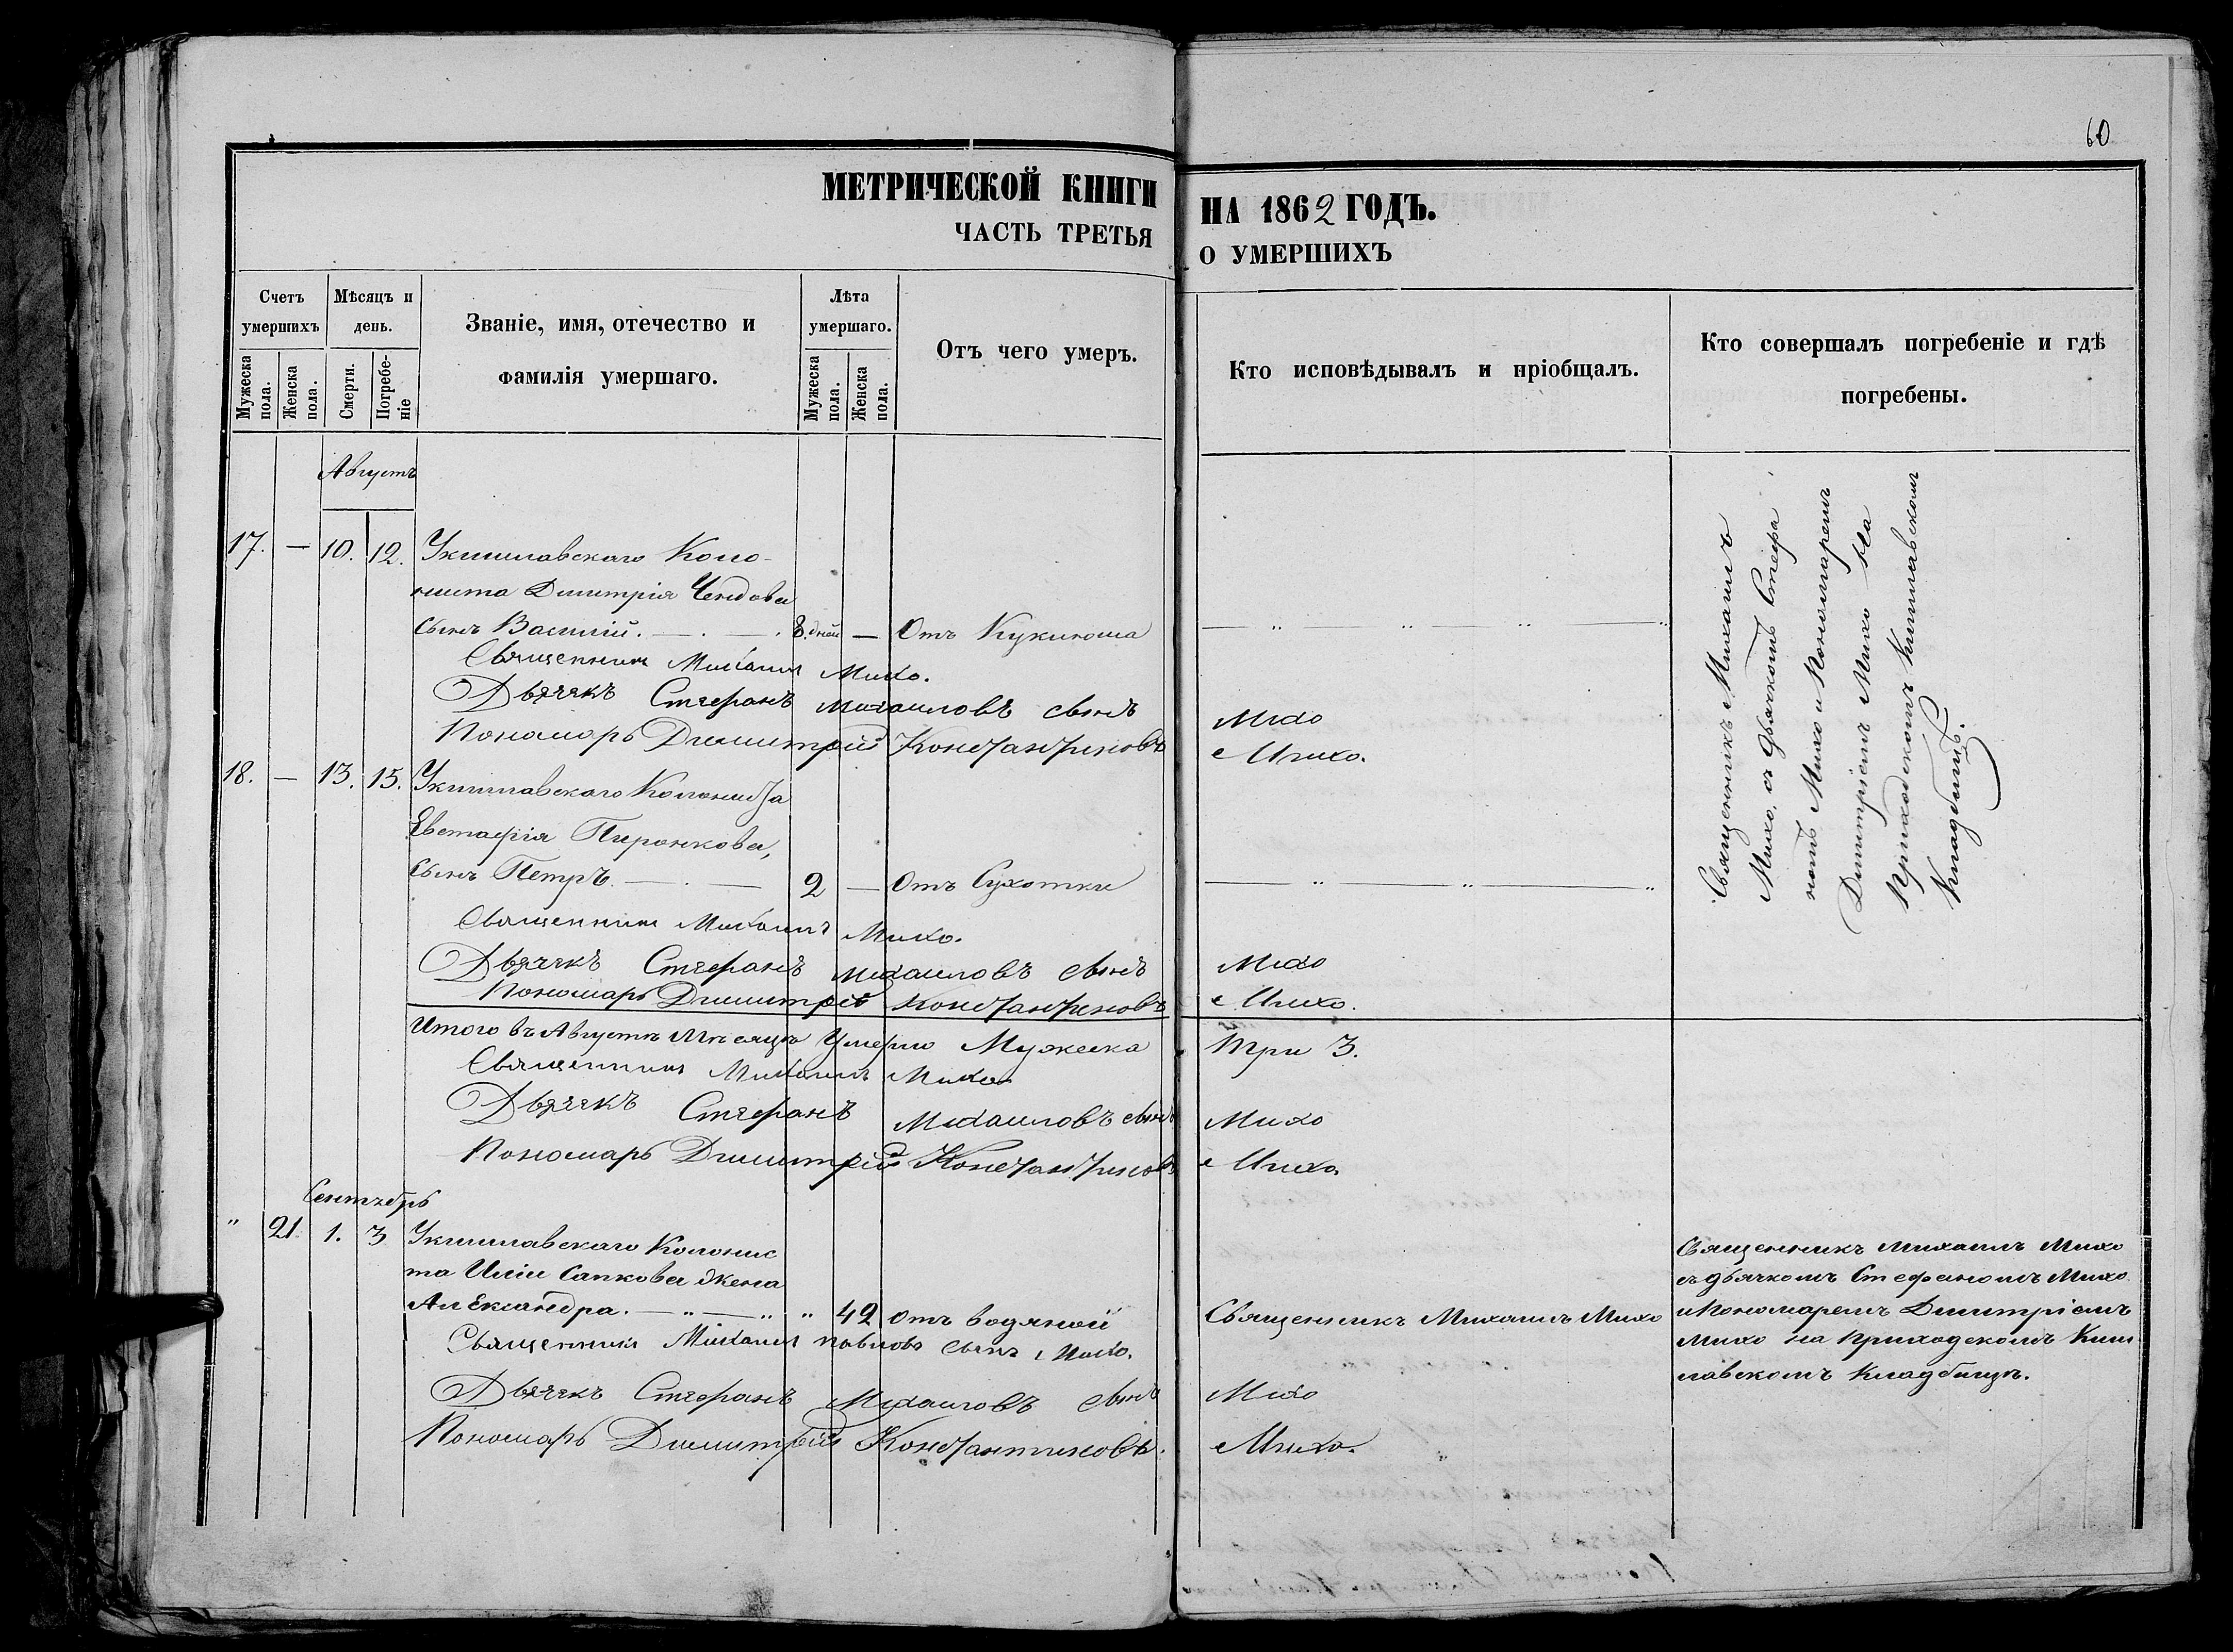 60
МЕТРИЧЕСКОЙ КНИГИ НА 1862 ГОДЪ.
ЧАСТЬ ТРЕТЬЯ О УМЕРШИХЪ
Счетъ умершихъ
Мѣсяцъ и день.
Званіе, имя, отечество и фамилія умершаго.
Лѣта умершаго.
Отъ чего умеръ.
Кто исповѣдывалъ и пріобщалъ.
Кто совершалъ погребеніе и гдѣ погребены.
Мужеска пола.
Женска пола.
Смерти.
Погребе-ніе
Мужеска пола.
Женска пола.
Августъ
17. — 10. 12. Укишлавскаго Коло-
ниста Димитрія Чендова
сынъ Василій. 8. дней — Отъ Куклюша
Священникъ Михаилъ Михо.
Дьячекъ Стефанъ Михаиловъ сынъ Михо
Пономарь Димитрій Константиновъ Михо.
Священникъ Михаилъ
Михо, съ дьячкомъ Стефа
номъ Михо и Пономаремъ
Димитріемъ Михо на
Приходскомъ Кишлавскомъ
Кладбищѣ.
18. — 13. 15. Укишлавскаго Колониста
Евстафія Пиронкова,
сынъ Петръ. 2 — Отъ Сухотки
Священникъ Михаилъ Михо.
Дьячекъ Стефанъ Михаиловъ сынъ Михо
Пономарь Димитрій Константиновъ Михо.
Итого въ Августѣ Мѣсяцѣ Умерло Мужеска Три 3.
Священникъ Михаилъ Михо
Дьячекъ Стефанъ Михаиловъ сынъ Михо
Пономарь Димитрій Константиновъ Михо.
Сентябрь
" 21. 1. 3 Укишлавскаго Колонис
та Иліи Сапкова жена
Александра. 42 отъ водяной Священникъ Михаилъ Михо
Священникъ Михаилъ Павловъ сынъ Михо.
Дьячекъ Стефанъ Михаиловъ сынъ Михо
Пономарь Димитрій Константиновъ. Михо.
Священникъ Михаилъ Михо
съ дьячкомъ Стефаномъ Михо
и Пономаремъ Димитріемъ
Михо на Приходскомъ Киш
лавскомъ Кладбищѣ.